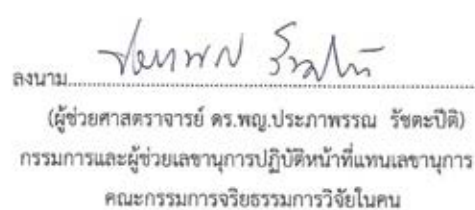 ลงนาม
(ผู้ช่วยศาสตราจารย์ ดร.พญ.ประภาพรรณ รัชตะปีติ)
กรรมการและผู้ช่วยเลขานุการปฏิบัติหน้าที่แทนเลขานุการ
คณะกรรมการจริยธรรมการวิจัยในคน